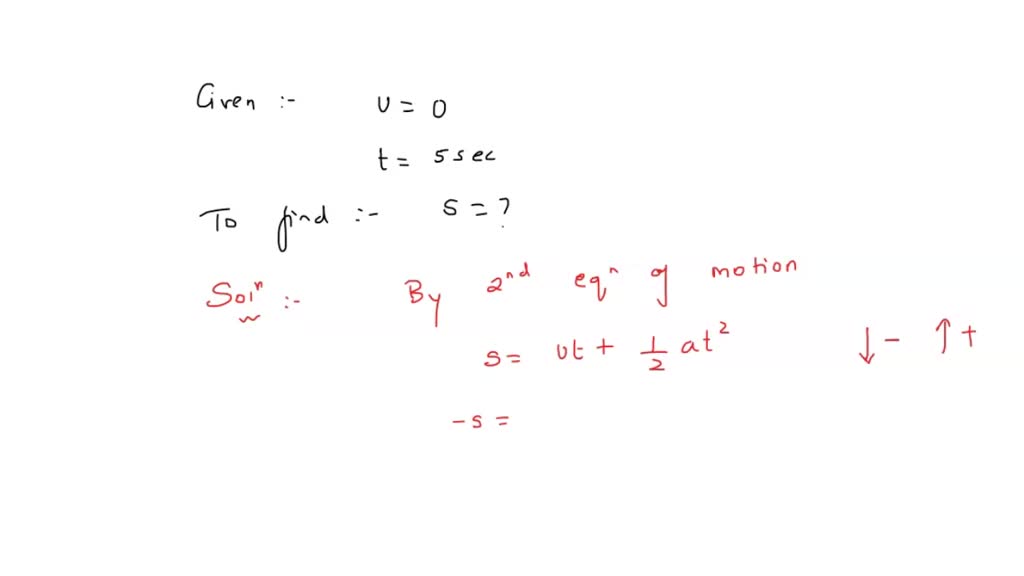 Given :- u = 0
t = 5 sec
To find :- s = ?
Solⁿ :- By 2ⁿᵈ eqⁿ of motion
s = ut + 1/2 at² ↓ - ↑ +
- s =